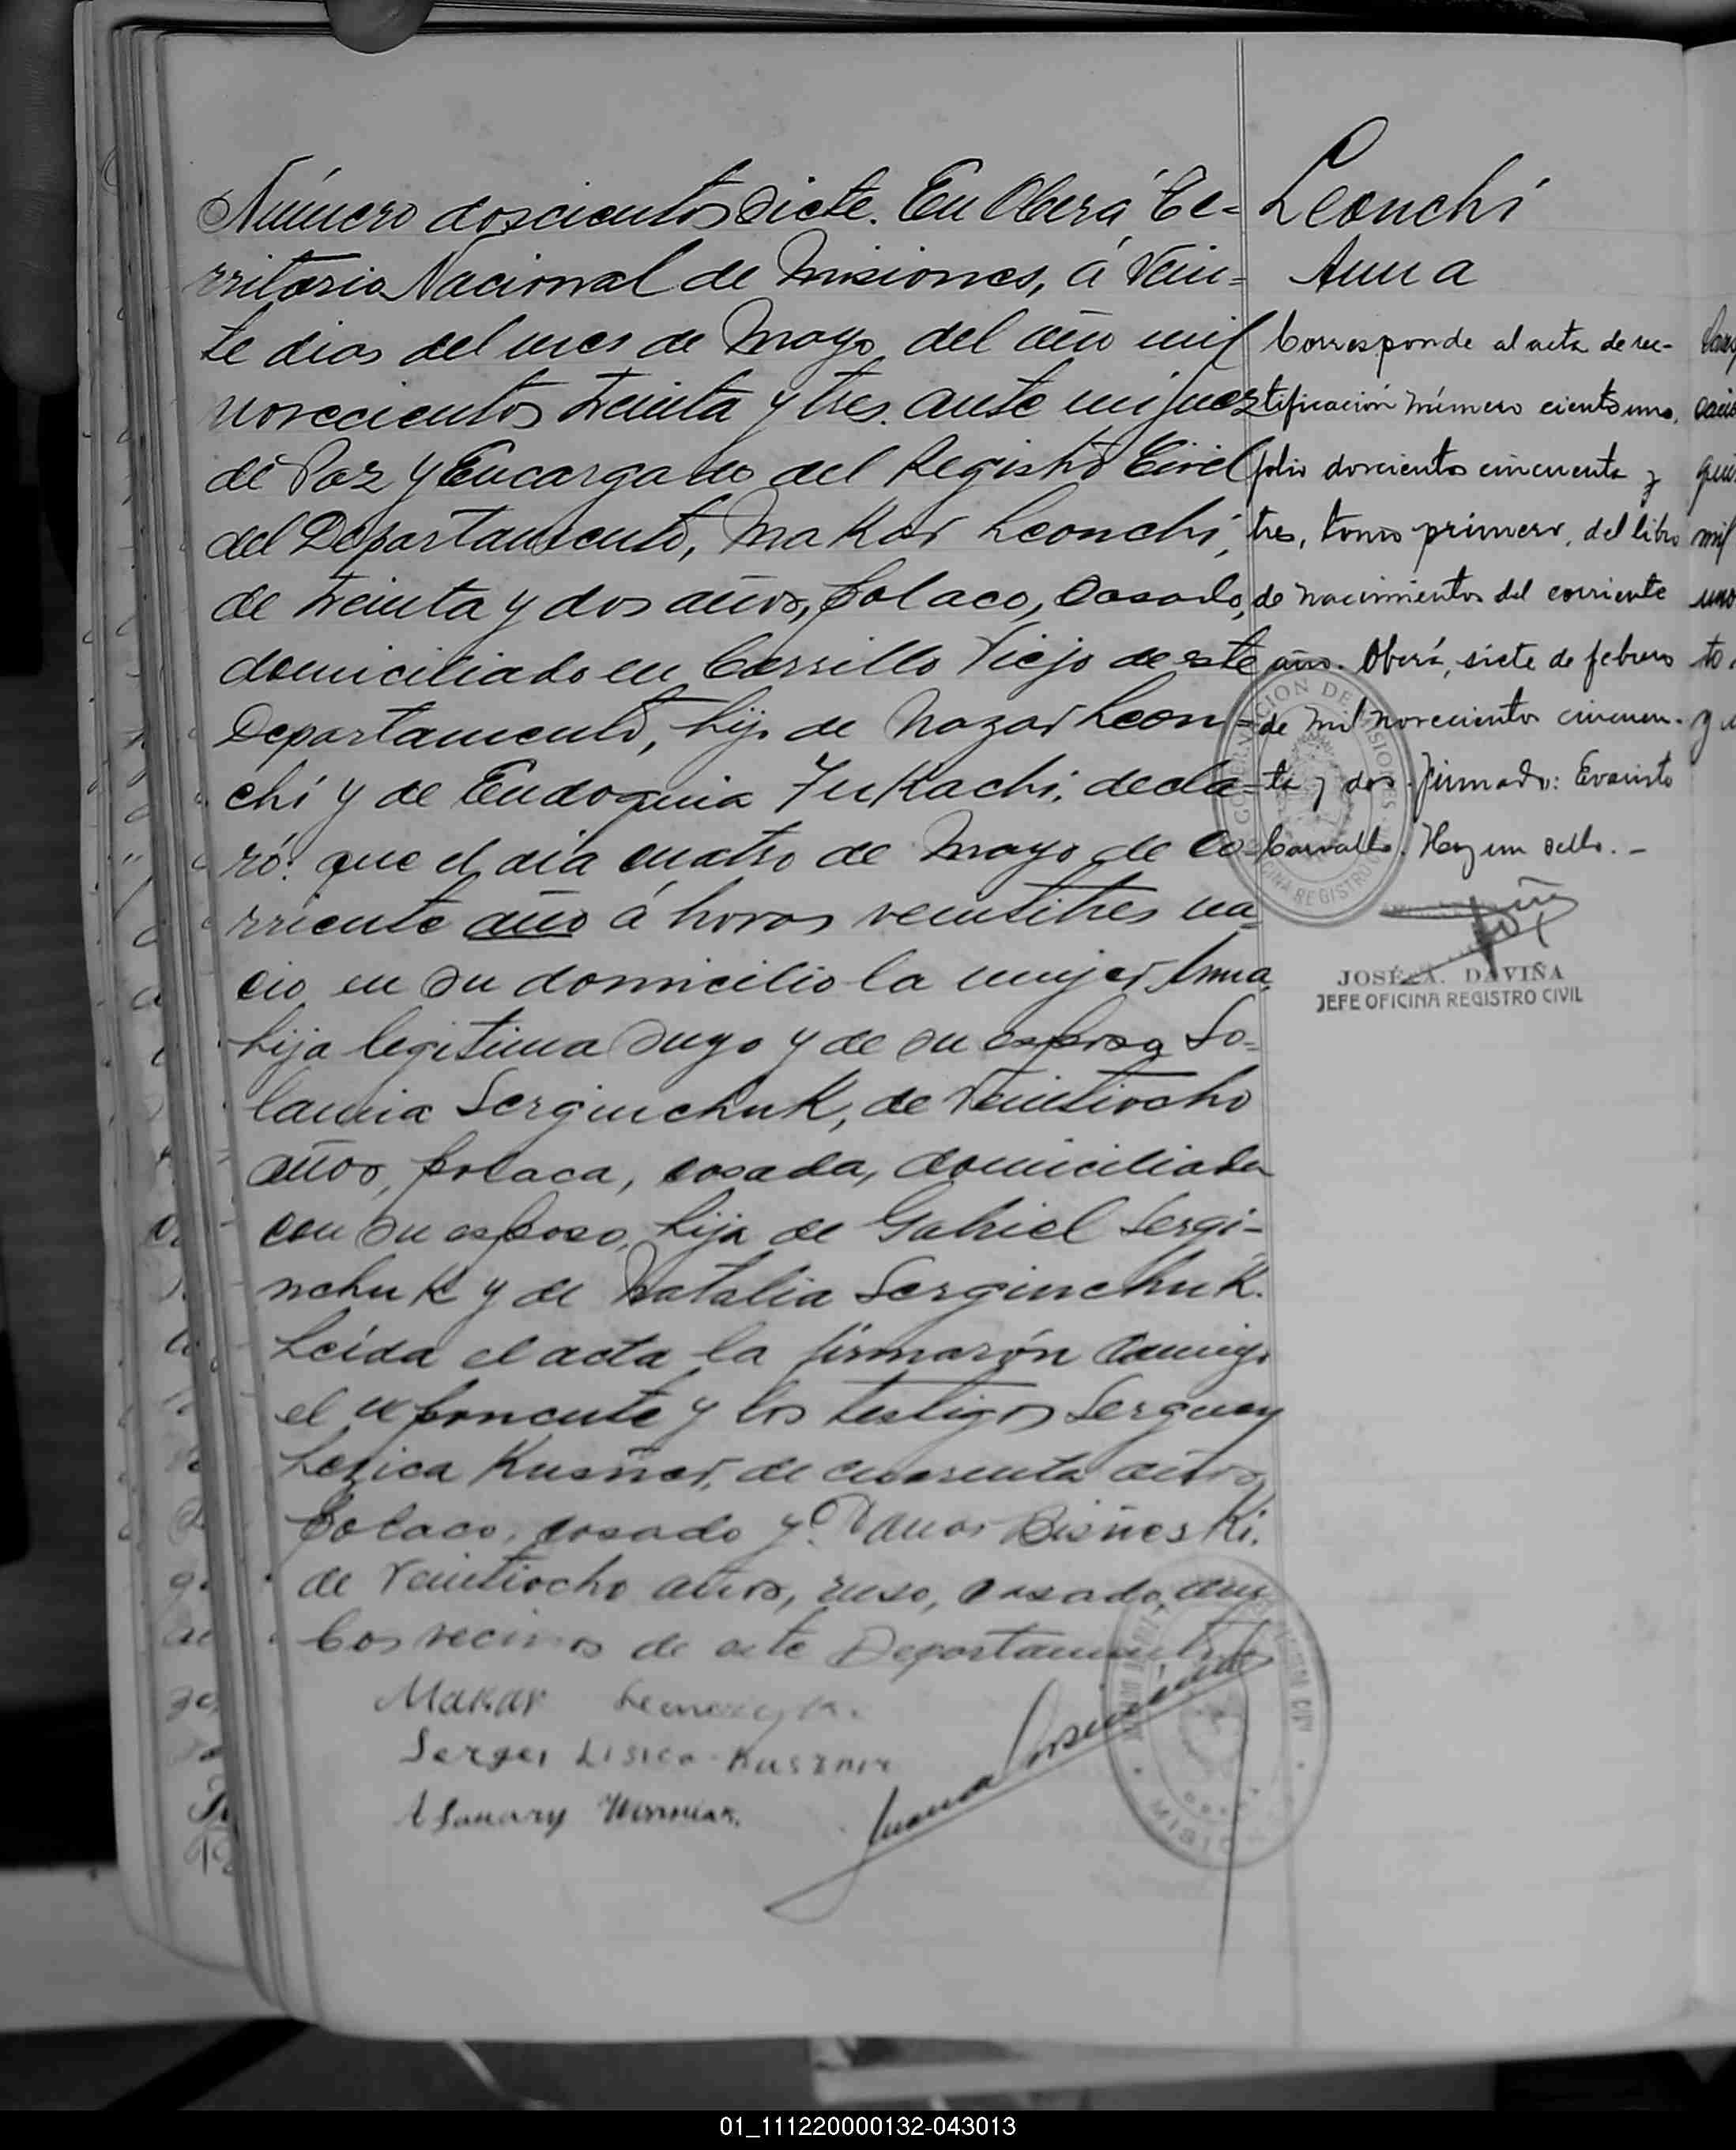 Número doscientos siete. En Oberá, Te=
rritorio Nacional de Misiones, á Vein=
te dias del mes de Mayo del año mil
novecientos treinta y tres. ante mi Juez
de Paz y Encargado del Registro Civil
del Departamento, Makar Leonchi,
de treinta y dos años, polaco, casado,
domiciliado en Cerrillo Viejo de este
Departamento, hijo de Nazar Leon=
chi y de Eudoquia Jukachi, decla=
ró: que el dia cuatro de Mayo de co=
rriente año á horas veintitres na=
cio en su domicilio la mujer Anna,
hija legitima suya y de su esposa So=
lamia Serginchuk, de Veintiocho
años, polaca, casada, domiciliada
con su esposo, hija de Gabriel Sergi=
nchuk y de Natalia Serginchuk.
Leída el acta la firmarón conmigo
el exponente y los testigos Serguey
Lezica Kusñer, de cuarenta años
polaco, casado y
de Veintiocho años, ruso, casado, am
bos vecinos de este Departamento
Makar
Sergei Lisica-Kusznir
Leonchi
Anna
Corresponde al acta de rec-
tificación número ciento uno,
folio doscientos cincuenta y
tres, tomo primero, del libro
de nacimientos del corriente
año. Oberá, siete de febrero
de mil novecientos cincuen-
ta y dos. Firmado: Evaristo
Carvallo. Hay un sello. -
GOBERNACION DE MISIONES
OFICINA REGISTRO
JOSÉ A. DAVIÑA
JEFE OFICINA REGISTRO CIVIL
01_111220000132-043013